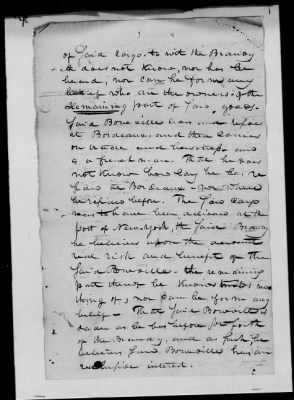 of said cargo. to wit the Brandy
he does not know, nor has he
heard, nor can he form any
belief who are the owners of the
remaining part of said goods.
Said Bouville has and resides
at Bordeaux, and then carries
on trade and has shops and
is a frenchman. That he does
not know how long he has re
sided at Bordeaux - nor where
he resided before. The said cargo
was to have been delivered at the
port of New York, the said Brandy
he believes upon the account
real risk and benefit of the
said Bouville - the remaining
part thereof he knows no
thing of, nor can he form any
belief - That said Bouville is
as he has before set forth
of the Brandy, and as such he
believes said Bouville has an
exclusive interest.